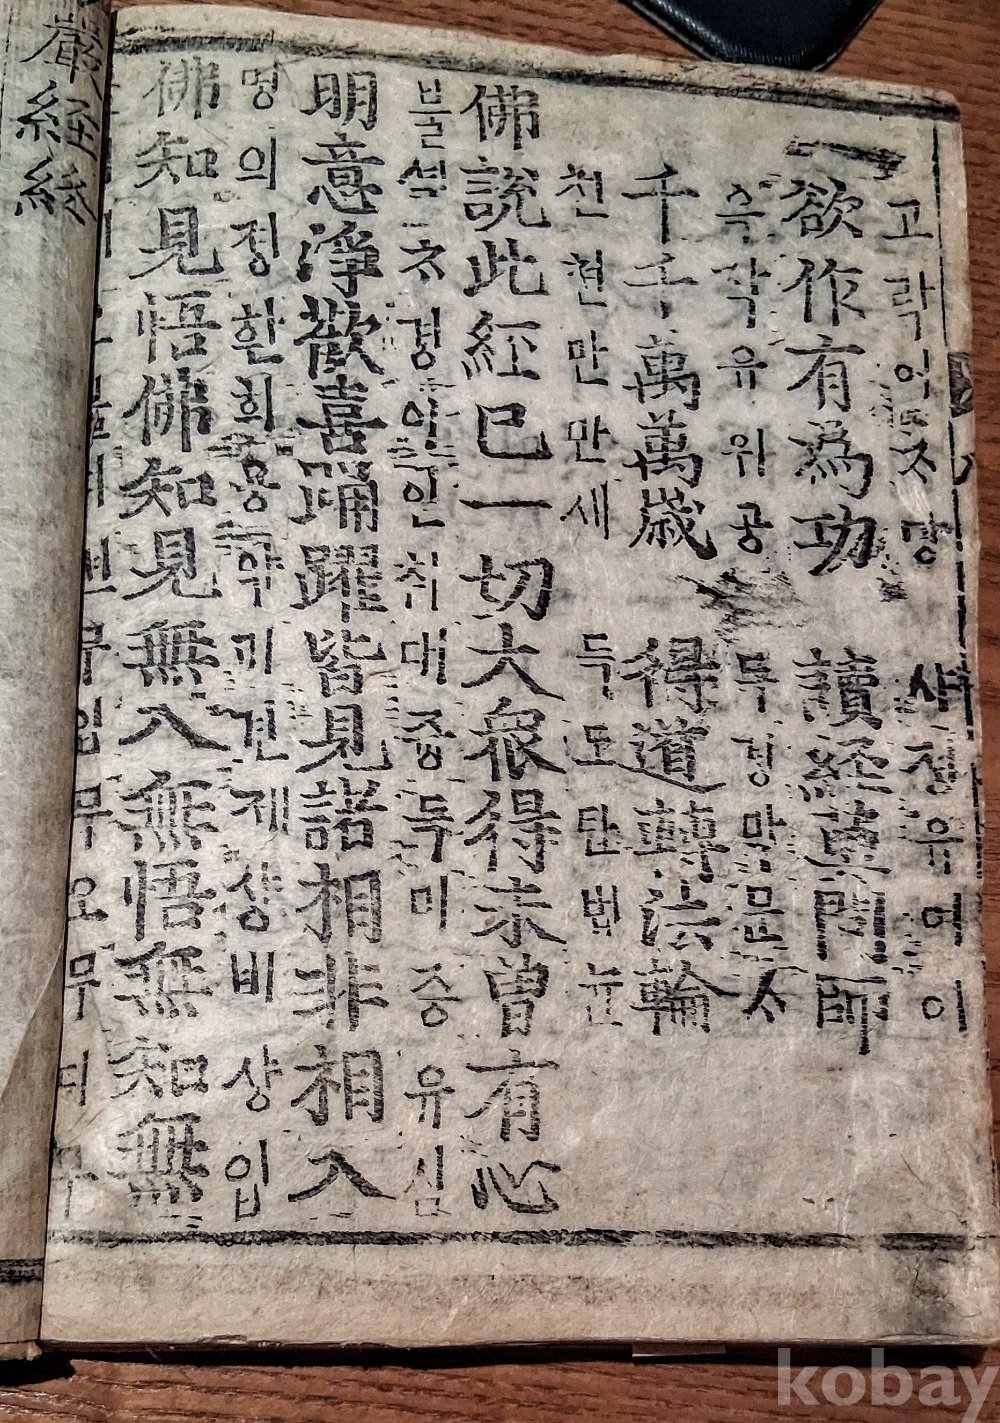 고락이ᄌᆞ당 샤졍유유이
欲作有爲功 讀經莫問師
욕작유위공 독경막문ᄉᆞ
千千萬萬歲 得道轉法輪
쳔쳔만만세 득도뎐법뉸
佛說此經已一切大衆得未曾有心
불셜ᄎᆞ경이일쳬대즁득미증유심
明意淨歡喜踊躍皆見諸相非相入
명의졍환희용약개견졔샹비샹입
佛知見悟佛知見無入無悟無知無
kobay